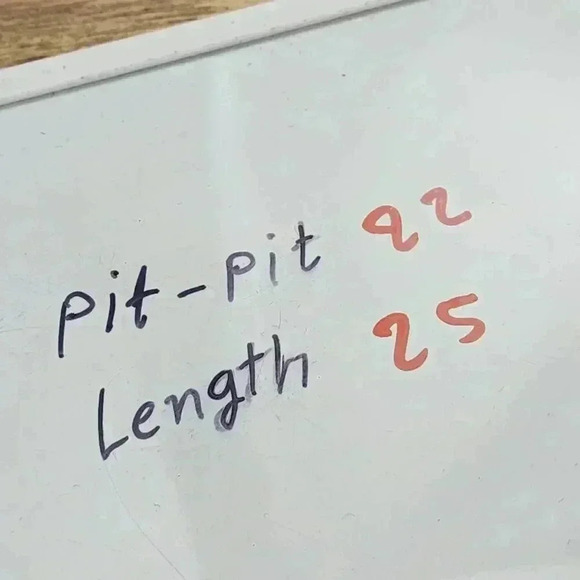 pit-pit 22
Length 25